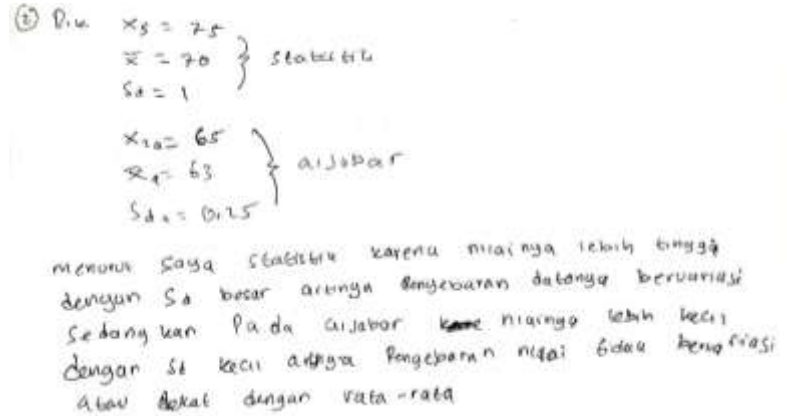 ② Dik x5 = 75
x̄ = 70 } statistik
Sd = 1
x2a = 65
x̄a = 63 } aljabar
Sda = 0,25
menurut saya statistik karena nilainya lebih tinggi
dengan Sd besar artinya Penyebaran datanya bervariasi
Sedangkan Pada aljabar nilainya lebih kecil
dengan Sd kecil artinya Pengebaran nilai tidak bervariasi
atau dekat dengan rata-rata